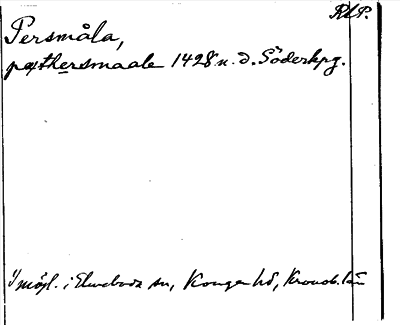 RAP.
Persmåla,
pæthersmaale 1428 u. d. Söderkpg.
möjl. i Elmeboda sn, Konga hd, Kronob. län